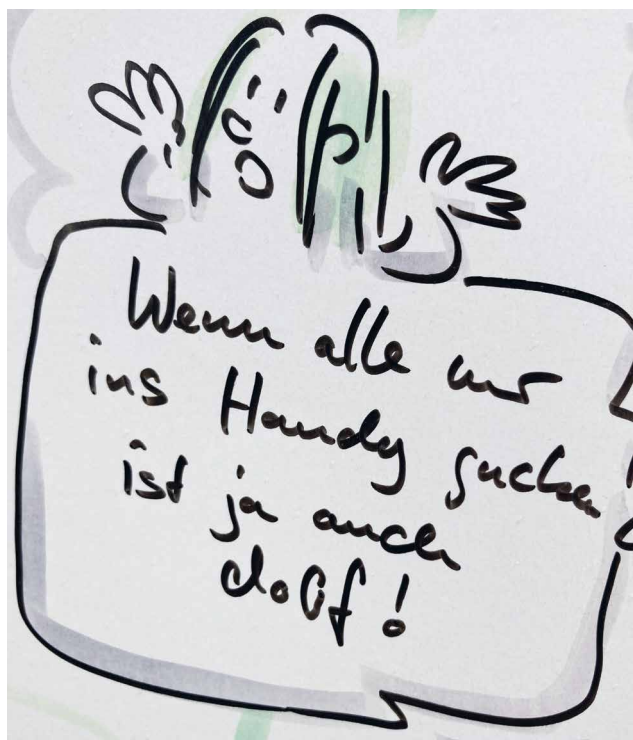 Wenn alle nur
ins Handy gucken
ist ja auch
doof!